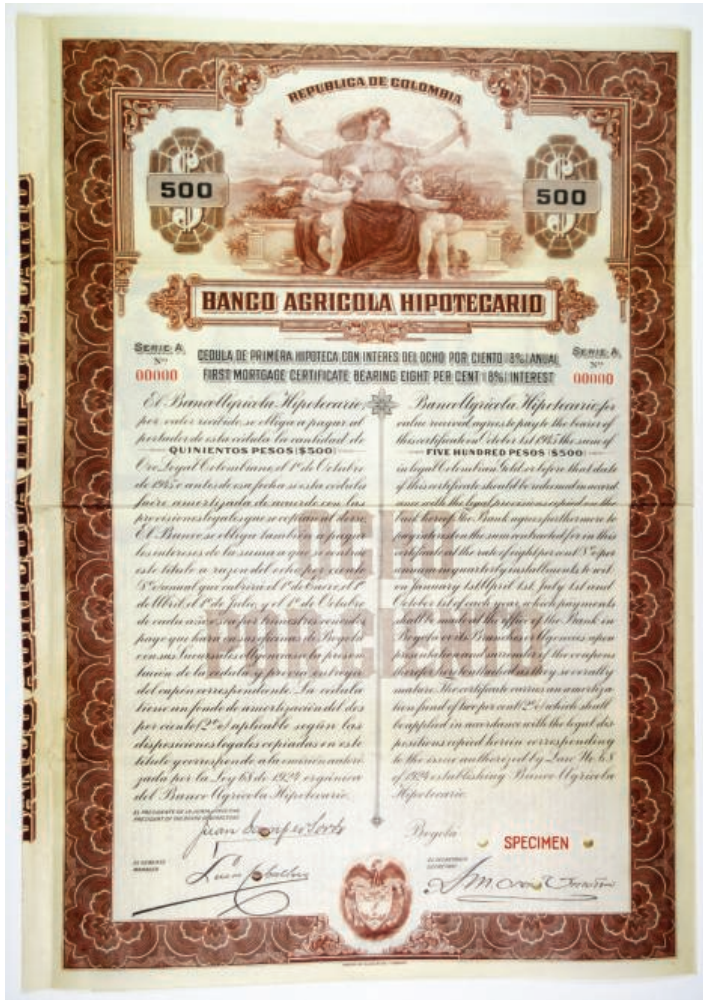 REPUBLICA DE COLOMBIA
500
500
BANCO AGRICOLA HIPOTECARIO
SERIE A
Nº
00000
CEDULA DE PRIMERA HIPOTECA CON INTERES DEL OCHO POR CIENTO (8%) ANUAL
FIRST MORTGAGE CERTIFICATE BEARING EIGHT PER CENT (8%) INTEREST
SERIE A
Nº
00000
El Banco Agricola Hipotecario,
por valor recibido, se obliga a pagar al
portador de esta cédula la cantidad de
QUINIENTOS PESOS ($500)
Oro Legal Colombiano, el 1º de Octubre
de 1945 o antes de esa fecha si esta cédula
fuere amortizada de acuerdo con las
provisiones legales que se copian al dorso.
El Banco se obliga también a pagar
los intereses de la suma a que se contrae
este título a razón del ocho por ciento
8% anual que cubrirá el 1º de Enero, el 1º
de Abril, el 1º de Julio, y el 1º de Octubre
de cada año, sea por trimestres vencidos,
pago que hará en sus oficinas de Bogotá
o en sus Sucursales o Agencias a la presen-
tación de la cédula y previa entrega
del cupón correspondiente. La cédula
tiene un fondo de amortización del dos
por ciento (2%) aplicable según las
disposiciones legales copiadas en este
título y corresponde a la emisión autori-
zada por la Ley 68 de 1924 orgánica
del Banco Agricola Hipotecario.
Banco Agricola Hipotecario, for
value received, agrees to pay to the bearer of
this certificate on October 1st 1945 the sum of
FIVE HUNDRED PESOS ($500)
in legal Colombian Gold, or before that date
if this certificate should be redeemed in accord-
ance with the legal provisions copied on the
back hereof; the Bank agrees furthermore to
pay interest on the sum contracted for in this
certificate at the rate of eight per cent 8% per
annum in quarterly installments to wit:
on January 1st, April 1st, July 1st and
October 1st of each year, which payments
shall be made at the office of the Bank in
Bogota or its Branches or Agencies upon
presentation and surrender of the coupons
therefor hereto attached as they severally
mature. The certificate carries an amortiza-
tion fund of two per cent (2%) which shall
be applied in accordance with the legal dis-
positions copied herein corresponding
to the issue authorized by Law No. 68
of 1924 establishing Banco Agricola
Hipotecario.
OCHO
POR CIENTO
EL PRESIDENTE DE LA JUNTA DIRECTIVA
PRESIDENT OF THE BOARD OF DIRECTORS
Bogotá
SPECIMEN
EL GERENTE
MANAGER
EL SECRETARIO
SECRETARY
BANCO AGRICOLA HIPOTECARIO